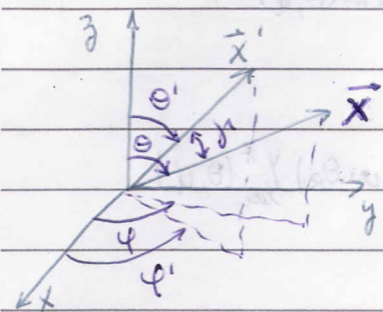 z
x⃗'
θ'
x⃗
θ
γ
y
φ
φ'
x